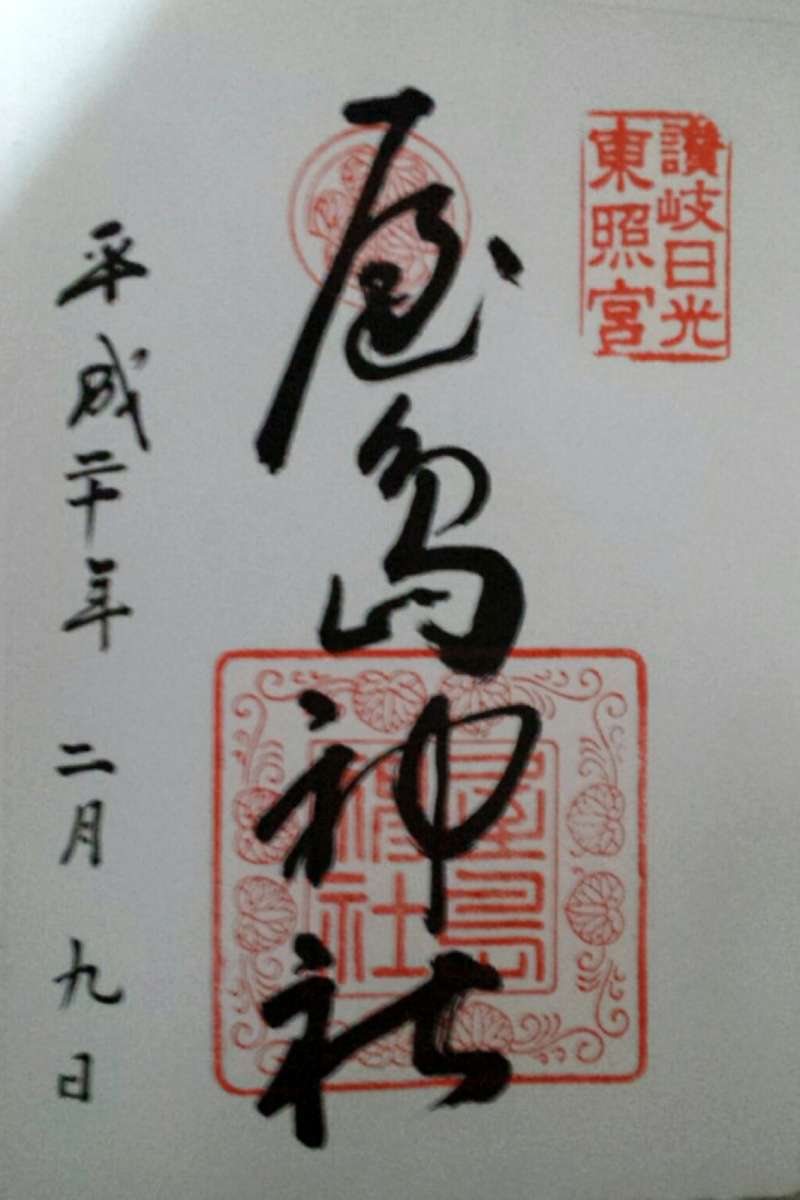 讃岐日光
東照宮
屋島神社
屋島
神社
平成二十年 二月 九日